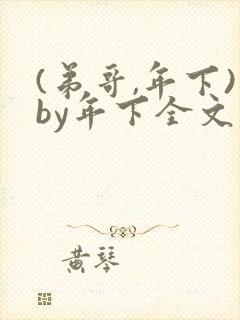 (弟哥,年下)
by年下全文
黄琴